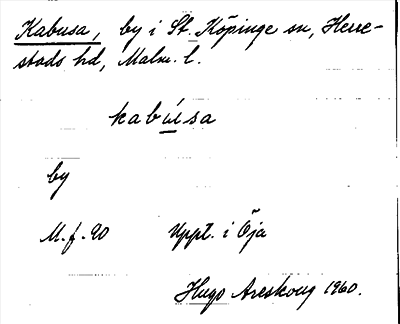 Kabusa, by i St. Köpinge sn, Herre-
stads hd, Malm. l.
kabúsa
by
M.f. 90 Uppt. i Öja
Hugo Areskoug 1960.